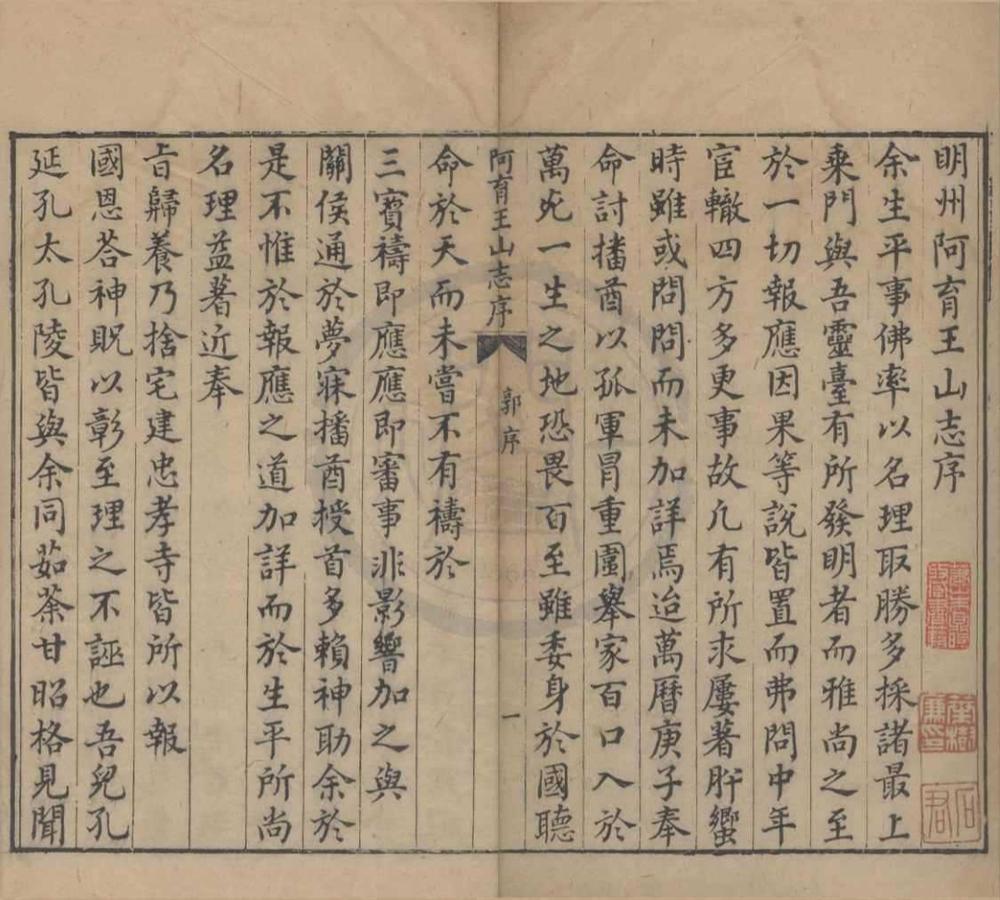 明州阿育王山志序
余生平事佛率以名理取勝多採諸最上
乘門與吾靈臺有所發明者而雅尚之至
於一切報應因果等說皆置而弗問中年
宦轍四方多更事故凡有所求屢著肸蠁
時雖或問問而未加詳焉迨萬曆庚子奉
命討播酋以孤軍冒重圍舉家百口入於
萬死一生之地恐畏百至雖委身於國聽
阿育王山志序 郭序 一
命於天而未嘗不有禱於
三寶禱即應應即審事非影響加之與
關侯通於夢寐播酋授首多賴神助余於
是不惟於報應之道加詳而於生平所尚
名理益著近奉
旨歸養乃捨宅建忠孝寺皆所以報
國恩荅神貺以彰至理之不誣也吾兒孔
延孔太孔陵皆與余同茹荼甘昭格見聞